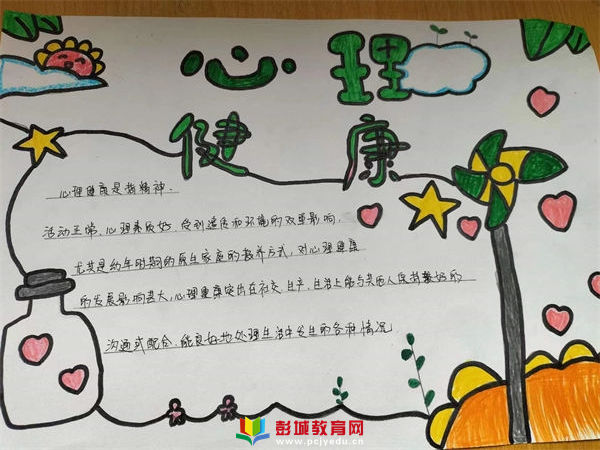 心理
健康
心理健康是指精神、
活动正常、心理素质好、受到遗传和环境的双重影响,
尤其是幼年时期的原生家庭的教养方式,对心理健康
的发展影响甚大,心理健康突出在社交、生产、生活上能与其他人保持较好的
沟通或配合、能良好地处理生活中发生的各种情况
彭城教育网
www.pcjyedu.cn